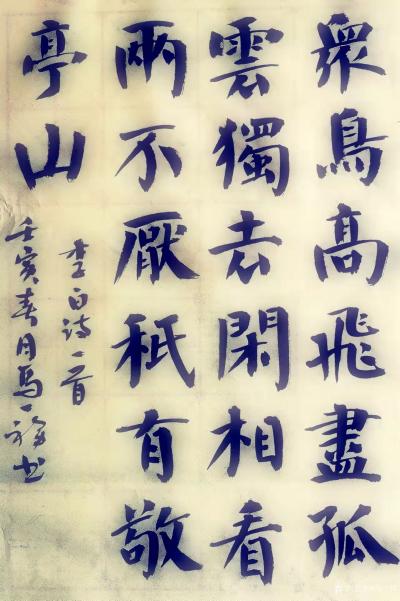 衆鳥高飛盡孤
雲獨去閑相看
兩不厭祇有敬
亭山
李白诗一首
壬寅春月馬一书